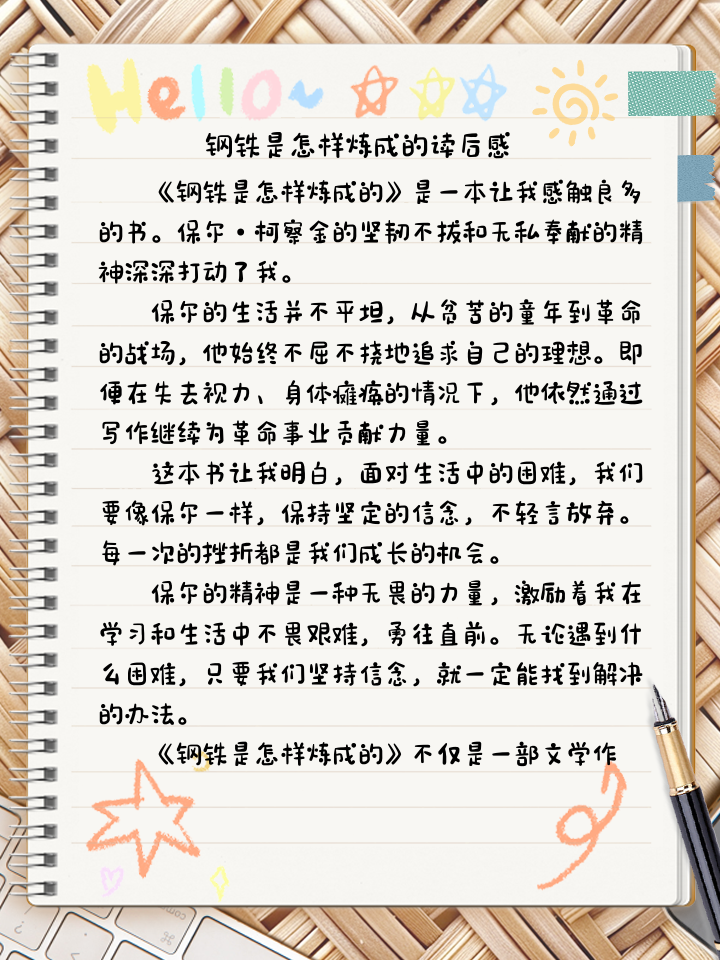 Hello~
钢铁是怎样炼成的读后感
《钢铁是怎样炼成的》是一本让我感触良多
的书。保尔·柯察金的坚韧不拔和无私奉献的精
神深深打动了我。
保尔的生活并不平坦，从贫苦的童年到革命
的战场，他始终不屈不挠地追求自己的理想。即
便在失去视力、身体瘫痪的情况下，他依然通过
写作继续为革命事业贡献力量。
这本书让我明白，面对生活中的困难，我们
要像保尔一样，保持坚定的信念，不轻言放弃。
每一次的挫折都是我们成长的机会。
保尔的精神是一种无畏的力量，激励着我在
学习和生活中不畏艰难，勇往直前。无论遇到什
么困难，只要我们坚持信念，就一定能找到解决
的办法。
《钢铁是怎样炼成的》不仅是一部文学作